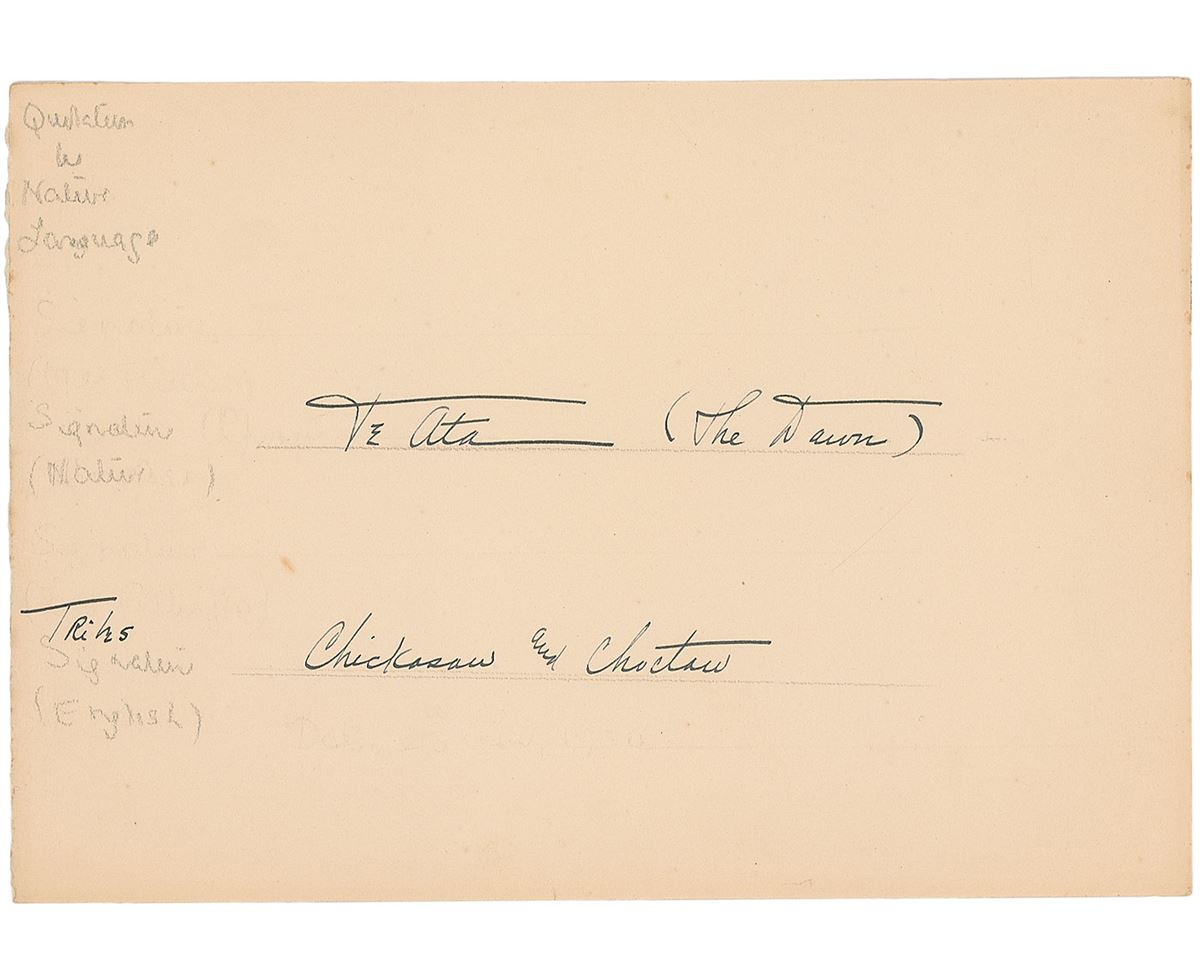 Quotation
in
Native
Language
Signature
Te Ata (The Dawn)
Signature
(Native)
Signature
Tribes
Chickasaw and Choctaw
Signature
(English)